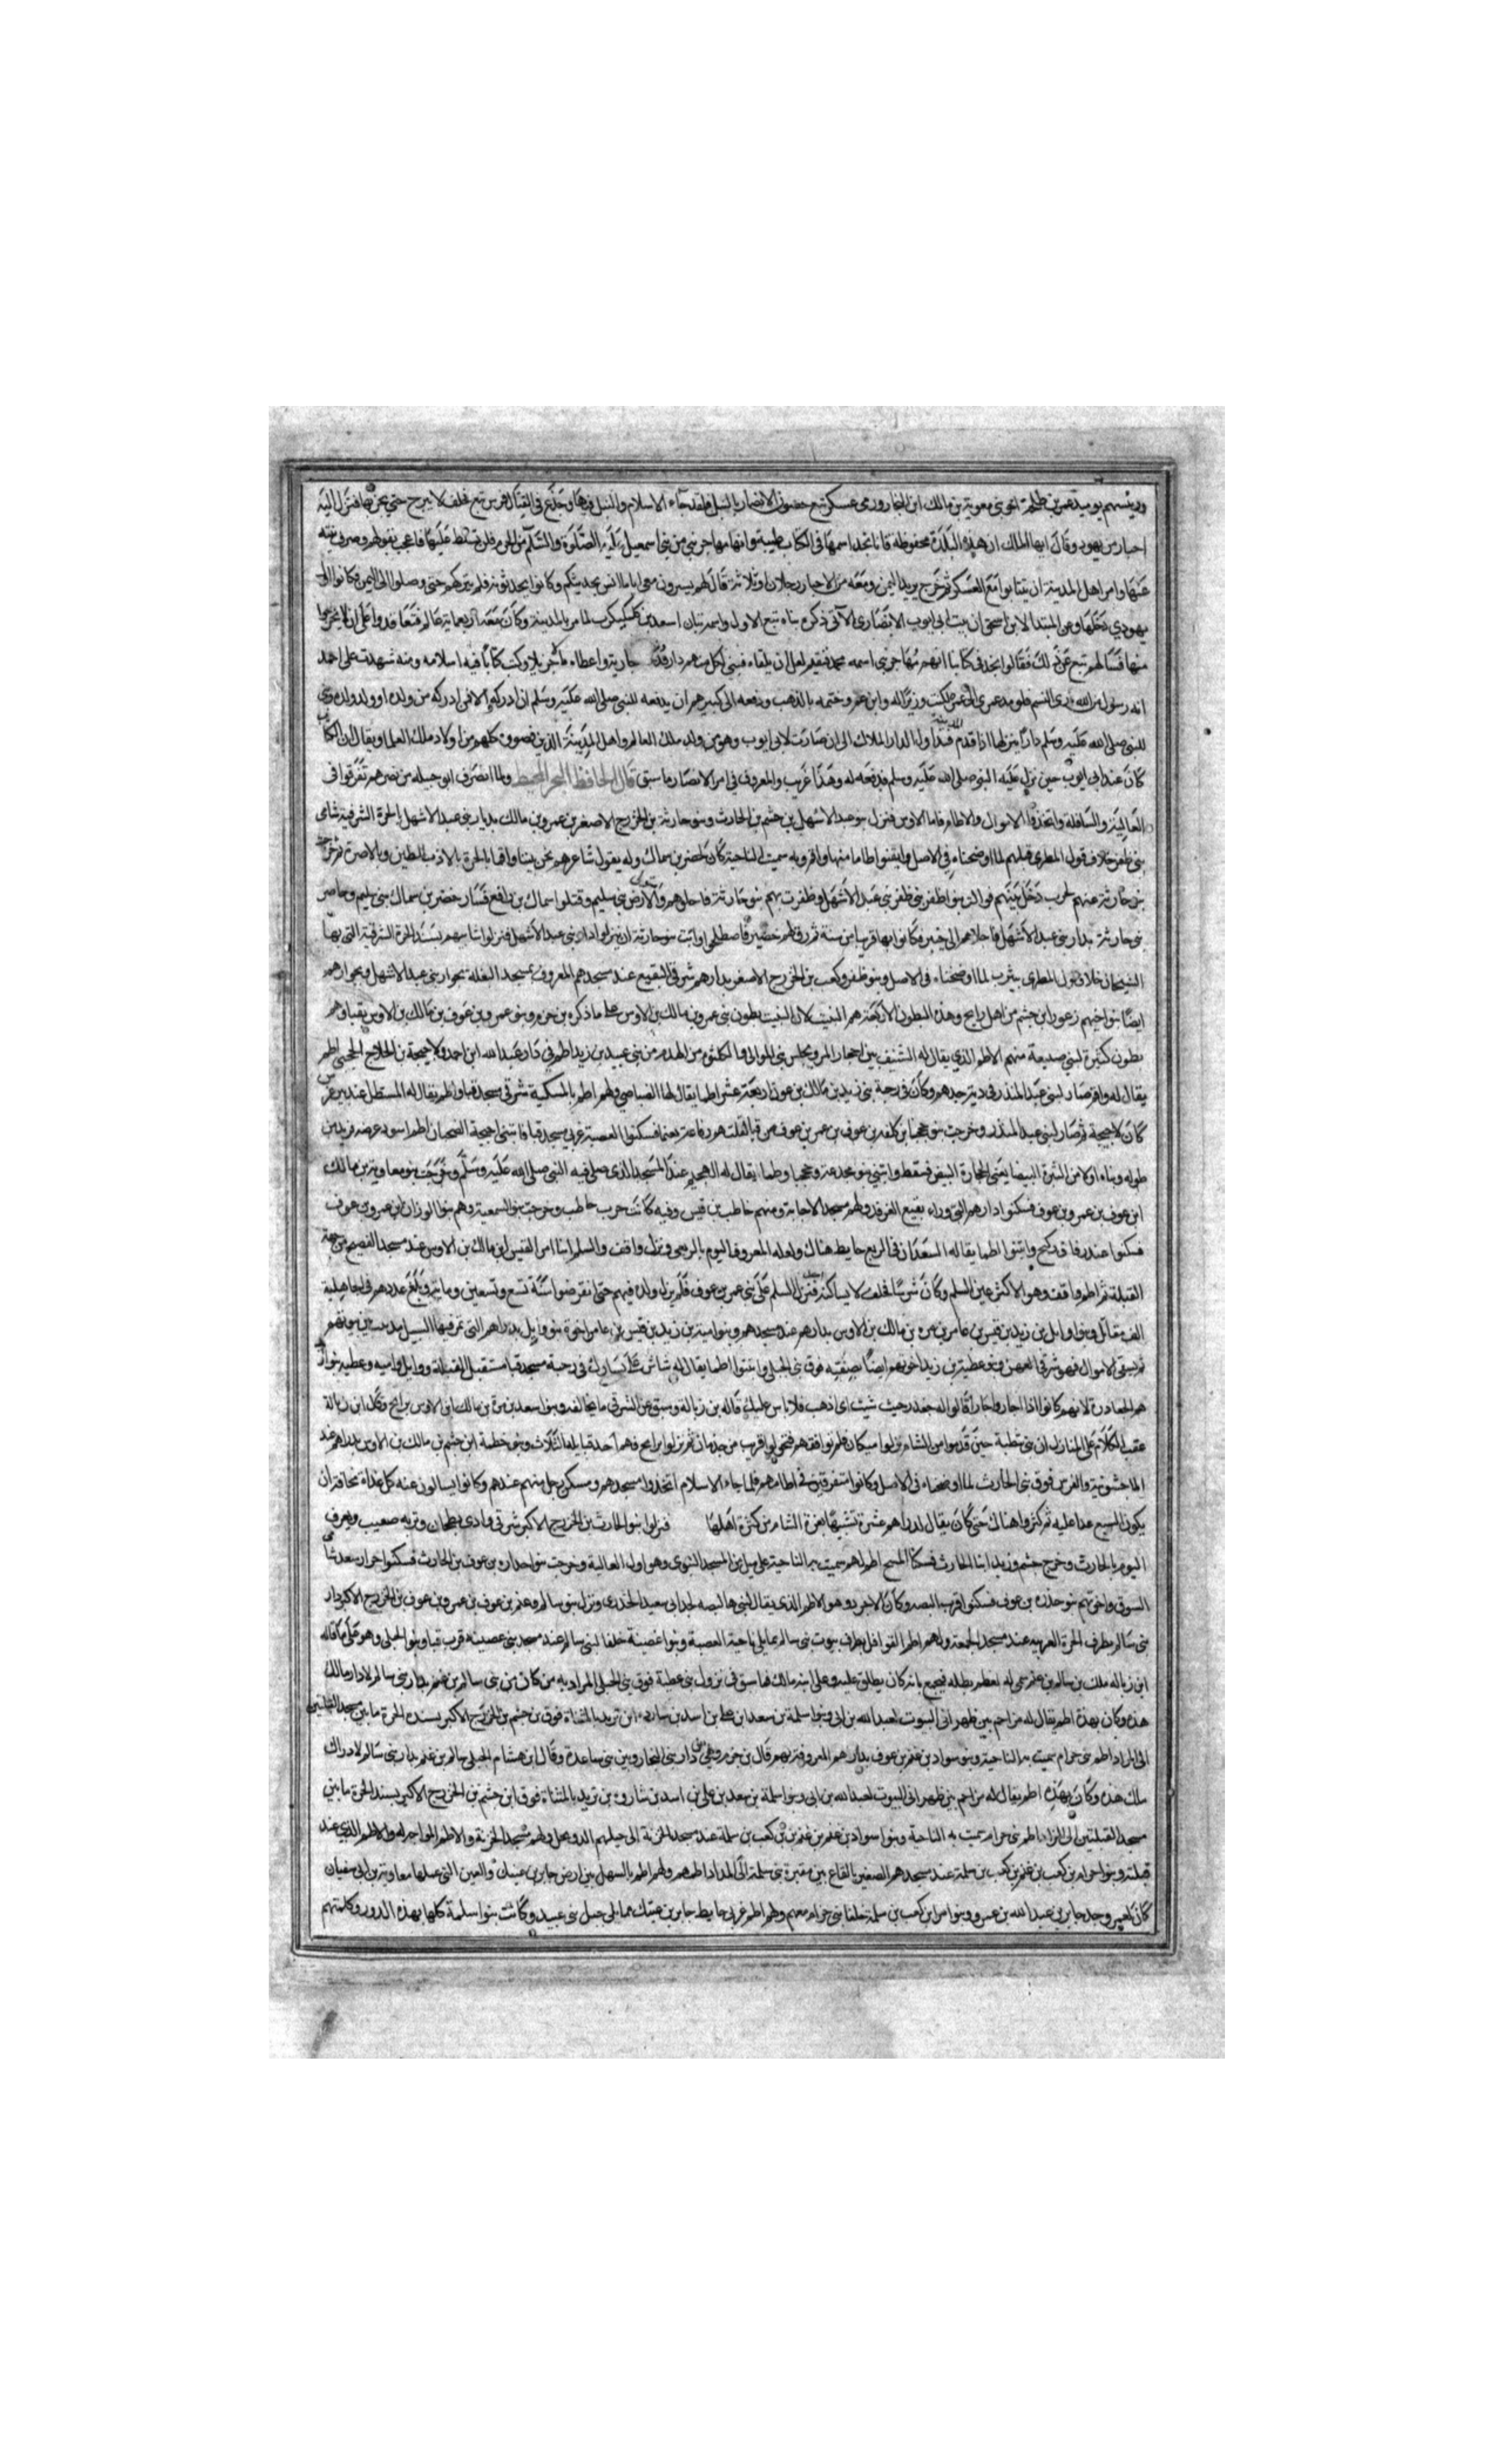 ورئيسهم يومئذ عمرو بن طلحة اخو بني معوية بن مالك ابن النجار ورمى عسكر تبع حصون الانصار بالنبل فلقد جاء الاسلام والنبل فيها وجدّع في القتال فرس تبع فحلف لا يبرح حتى يخربها فنزل اليه
احبار من يهود وقال ايها الملك ان هذه البلدة محفوظة فانا نجد اسمها في الكتاب طيبة وانها مهاجر نبي من بني اسمعيل عليه الصلوة والسلام من الحرم فلن تسلط عليها فاعجب بقولهم وصرف نيته
عنها وامر اهل المدينة ان يتبايعوا مع العسكر ثم خرج يريد اليمن ومعه من الاحبار رجلان او ثلاثة قال لهم يسيرون معي اياما انس بحديثكم وكانوا يحدثونه فلم يتركهم حتى وصلوا الى اليمن وكانوا اول
يهودي دخلها وعن المبتدا لابن اسحق ان بيت ابي ايوب الانصاري الآتي ذكره بناه تبع الاول واسمه تبان اسعد بن كليكرب لما مر بالمدينة وكان معه اربعماية عالم فتعاقدوا على ان لا يخرجوا
منها فسالهم تبع عن ذلك فقالوا نجد في كتابنا انها مهاجر نبي اسمه محمد فنقيم لعل ان نلقاه فبنى لكل منهم دارا جارية واعطاه مالا جزيلا وكتب كتابا فيه اسلامه ومنه شهدت على احمد
انه رسول من الله باري النسم فلو مد عمري الى عمره لكنت وزيرا له وابن عم وختمه بالذهب ودفعه الى كبيرهم ان يدفعه للنبي صلى الله عليه وسلم ان ادركه والا فمن ادركه من ولده او ولد ولده وبنى
للنبي صلى الله عليه وسلم دارا ينزلها اذا قدم المدينة فتداول الدار الملاك الى ان صارت لابي ايوب وهو من ولد ذلك العالم واهل المدينة الذين نصروه كلهم من اولاد ذلك العلما ويقال ان الكتاب
كان عند ابي ايوب حين نزل عليه النبي صلى الله عليه وسلم فدفعه له وهذا غريب والمعروف في امر الانصار ما سبق قال الحافظ ولما انصرف ابو جبيله من نصرهم تفرقوا في
العالية والسافلة واتخذوا الاموال والاطام فاما الاوس فنزل بنو عبد الاشهل بن جشم بن الحارث وبنو حارثة بن الخزرج الاصغر بن عمرو بن مالك بدار بني عبد الاشهل بالحرة الشرقية شامي
بني ظفر خلاف قول المطري قبليهم لما اوضحناه في الاصل وابتنوا اطاما منها واقم وبه سميت الناحية كان لحضير بن سماك وله يقول شاعرهم نحن بنينا واقما بالحرة بلازب الطين وبالاصرة
بنو حارثة عنهم لحرب دخل بينهم بني ظفر بني عبد الاشهل وظفرت بهم بنو حارثة فاجلوهم والارض بني سليم وقتلوا سماك بن رافع فسار حضير بن سماك ببني سليم وحاصر
بني حارثة بدار بني عبد الاشهل فاجلاهم الى خيبر فكانوا بها قريبا من سنة ثم رق لهم حضير فاصطلحوا وابت بنو حارثة ان ينزلوا دار بني عبد الاشهل فنزلوا بسند الحرة الشرقية التي بها
الشيخان خلاف قول المطري بيثرب لما اوضحناه في الاصل وبنو ظفر وكعب بن الخزرج الاصغر بدارهم شرقي البقيع عند مسجدهم المعروف بمسجد البغلة بجوار بني عبد الاشهل وبجوارهم
ايضا بنو اخيهم زعورا بن جشم من اهل راتج وهذه البطون الاربعة هم النبيت لان النبيت بطون بني عمرو بن مالك بن الاوس على ما ذكره بن حزم وبنو عمرو بن عوف بن مالك بن الاوس بقبا وهم
بطون كثيرة لبني ضبيعة منهم الاطم الذي يقال له الشنيف بين احجار المرو ومجلس بني الموالي ولكلثوم من الهدم من بني عبيد بن زيد اطم في دار عبد الله ابن احمد ولاحيحة بن الجلاح الجحجبي اطم
يقال له واقم صار لبني عبد المنذر في دية جدهم وكان في رحبة بني زيد بن مالك بن عوف اربعة عشر اطما يقال لها الصياصي ولهم اطم بالمسكبة شرقي مسجد قبا واطم يقال له المستظل عند بير غرس
كان لاحيحة ثم صار لبني عبد المنذر وخرجت بنو جحجبا بن كلفة بن عوف بن عمرو بن عوف من قبا فسكنوا العصبة غربي مسجد قبا فابتنى احيحة الضحيان اطم اسود عرضه قريب من
طوله وبناه اولا من البثرة البيضا يعني الحجارة البيض فسقط وابتنى بنو مجدعة وجحجبا اطما يقال له الهجيم عند المسجد الذي صلى فيه النبي صلى الله عليه وسلم وخرجت بنو معاوية بن مالك
ابن عوف بن عمرو بن عوف فسكنوا دارهم التي وراء بقيع الغرقد ولهم مسجد الاجابة ومنهم حاطب بن قيس وفيه كانت حرب حاطب وخرجت بنو السميعة وهم بنو لوذان بن عمرو بن عوف
فسكنوا عند زقاق ركيح وابتنوا اطما يقال له السعدان في الربع حايط هناك ولعله المعروف اليوم بالربعي ونزل واقف والسلم ابنا امرا القيس ابن مالك بن الاوس عند مسجد الفضيخ من جهة
القبلة ثم اطم واقف وهو الاكثر عين السلم وكان شرسا فحلف لا يساكنه فنزل السلم على بني عمرو بن عوف فلم يزل ولده فيهم حتى انقرضوا سنة تسع وتسعين وماية وبلغ عددهم في الجاهلية
الف مقاتل وبنو وايل بن زيد بن قيس بن عامر بن مرة بن مالك بن الاوس بدارهم عند مسجدهم وبنو امية بن زيد بن قيس بن عامر اخوة بنو وايل بدارهم التي يمر فيها السيل بين بيوتهم
ثم يسقي الاموال فهو شرقي العهن وبنو عطية بن زيد اخوتهم ايضا بصفنة فوق بني الحبلى وابتنوا اطما يقال له شاش على يسارك في رحبة مسجد قبا مستقبل القبلة ووايل وامية وعطية بنو زيد
هم الجعادرة لانهم كانوا اذا اجاروا جارا قالوا له جعدر حيث شيت اي اذهب فلا باس عليك قاله بن زبالة وسبق عن الشرقي ما يخالفه وبنو سعد بن مرة بن مالك ابن الاوس براتج وقال ابن زبالة
عقب الكلام على المنازل ان بني خطمة حين قدموا من الشام نزلوا ميكان فلم يوافقهم فتحولوا قريب من جذمان ثم نزلوا براتج فهم احد قبايلها الثلاث وبنو خطمة ابن جشم بن مالك بن الاوس بدارهم عند
الماجشونية والغرس فوق بني الحارث لما اوضحناه في الاصل وكانوا متفرقين في اطامهم فلما جاء الاسلام اتخذوا مسجدهم وسكن رجل منهم عندهم وكانوا يسالون عنه كل غداة مخافة ان
يكون السبع عدا عليه ثم كثروا هناك حتى كان يقال لدارهم غزة تشبيها بغزة الشام من كثرة اهلها فنزلوا بنو الحارث بن الخزرج الاكبر شرقي وادي بطحان وتربة صعيب ويعرف
اليوم بالحارث وخرج جشم وزيد ابنا الحارث فسكنا السنح اطم لهم سميت به الناحية على ميل من المسجد النبوي وهو اول العالية وخرجت بنو جدارة بن عوف بن الحارث فسكنوا جرار سعد شامي
السوق واخوتهم بنو خدرة بن عوف فسكنوا قرب البصة وكان الاجرد وهو الاطم الذي يقال لبيرها البصه لجد ابي سعيد الخدري ونزل بنو سالم وغنم بن عوف بن عمرو بن عوف بن الخزرج الاكبر دار
بني سالم بطرف الحرة الغربية عند مسجد الجمعة ولهم اطم القواقل بطرف بيوت بني سالم مما يلي ناحية العصبة وبنو غصينة حلفا لبني سالم عند مسجد بني غصينة قرب قبا وبنو الحبلى وهو على ما قاله
ابن زباله ملك بن سالم بن غنم سمي به لعظم بطنه فيجمع بانه كان يطلق عليه وعلى ابنه مالك فما سبق في نزول بني عطية فوق بني الحبلى المراد به من كان من بني سالم بن غنم بدار بني سالم لا دار مالك
هذه وكان بهذه اطم يقال له مزاحم بين ظهراني البيوت لعبد الله بن ابي وبنو سلمة بن سعد ابن علي بن اسد بن ساردة ابن تزيد بالمثناة فوق بن جشم بن الخزرج الاكبر بسند الحرة ما بين مسجد القبلتين
الى المراد اطم بني حرام سميت به الناحية وبنو سواد بن غنم بن عوف بدارهم المعروفة بهم قال بن حزم وهي دار بني النجار وبين بني ساعدة وقال ابن هشام الحبلى سالم بن غنم بدار بني سالم لا دار
ملك هذه وكان بهذه اطم يقال له مزاحم بين ظهراني البيوت لعبد الله بن ابي وبنو سلمة بن سعد بن علي بن اسد بن شاردة بن تزيد بالمثناة فوق ابن جشم بن الخزرج الاكبر بسند الحرة ما بين
مسجد القبلتين الى المذاد اطم بني حرام سميت به الناحية وبنو سواد بن غنم بن كعب بن سلمة عند مسجد الخربة الى ولهم مسجد الخربة والاطم الذي عند
قبلته وبنو حرام بن كعب بن غنم بن كعب بن سلمة عند مسجدهم الصغير بالقاع بين مقبرة بني سلمة الى المذاد اطمهم ولهم اطم بالسهل بين ارض جابر بن عتيك والعين التي عملها معاوية بن ابي سفيان
كان لعمرو جد جابر بن عبد الله بن عمرو وبنو مر ابن كعب بن سلمة حلفا بني حرام معهم ولهم اطم غربي حايط جابر بن عتيك مما يلي جبل بني عبيد وكانت بنو سلمة كلها بهذه الدور وكلمتهم